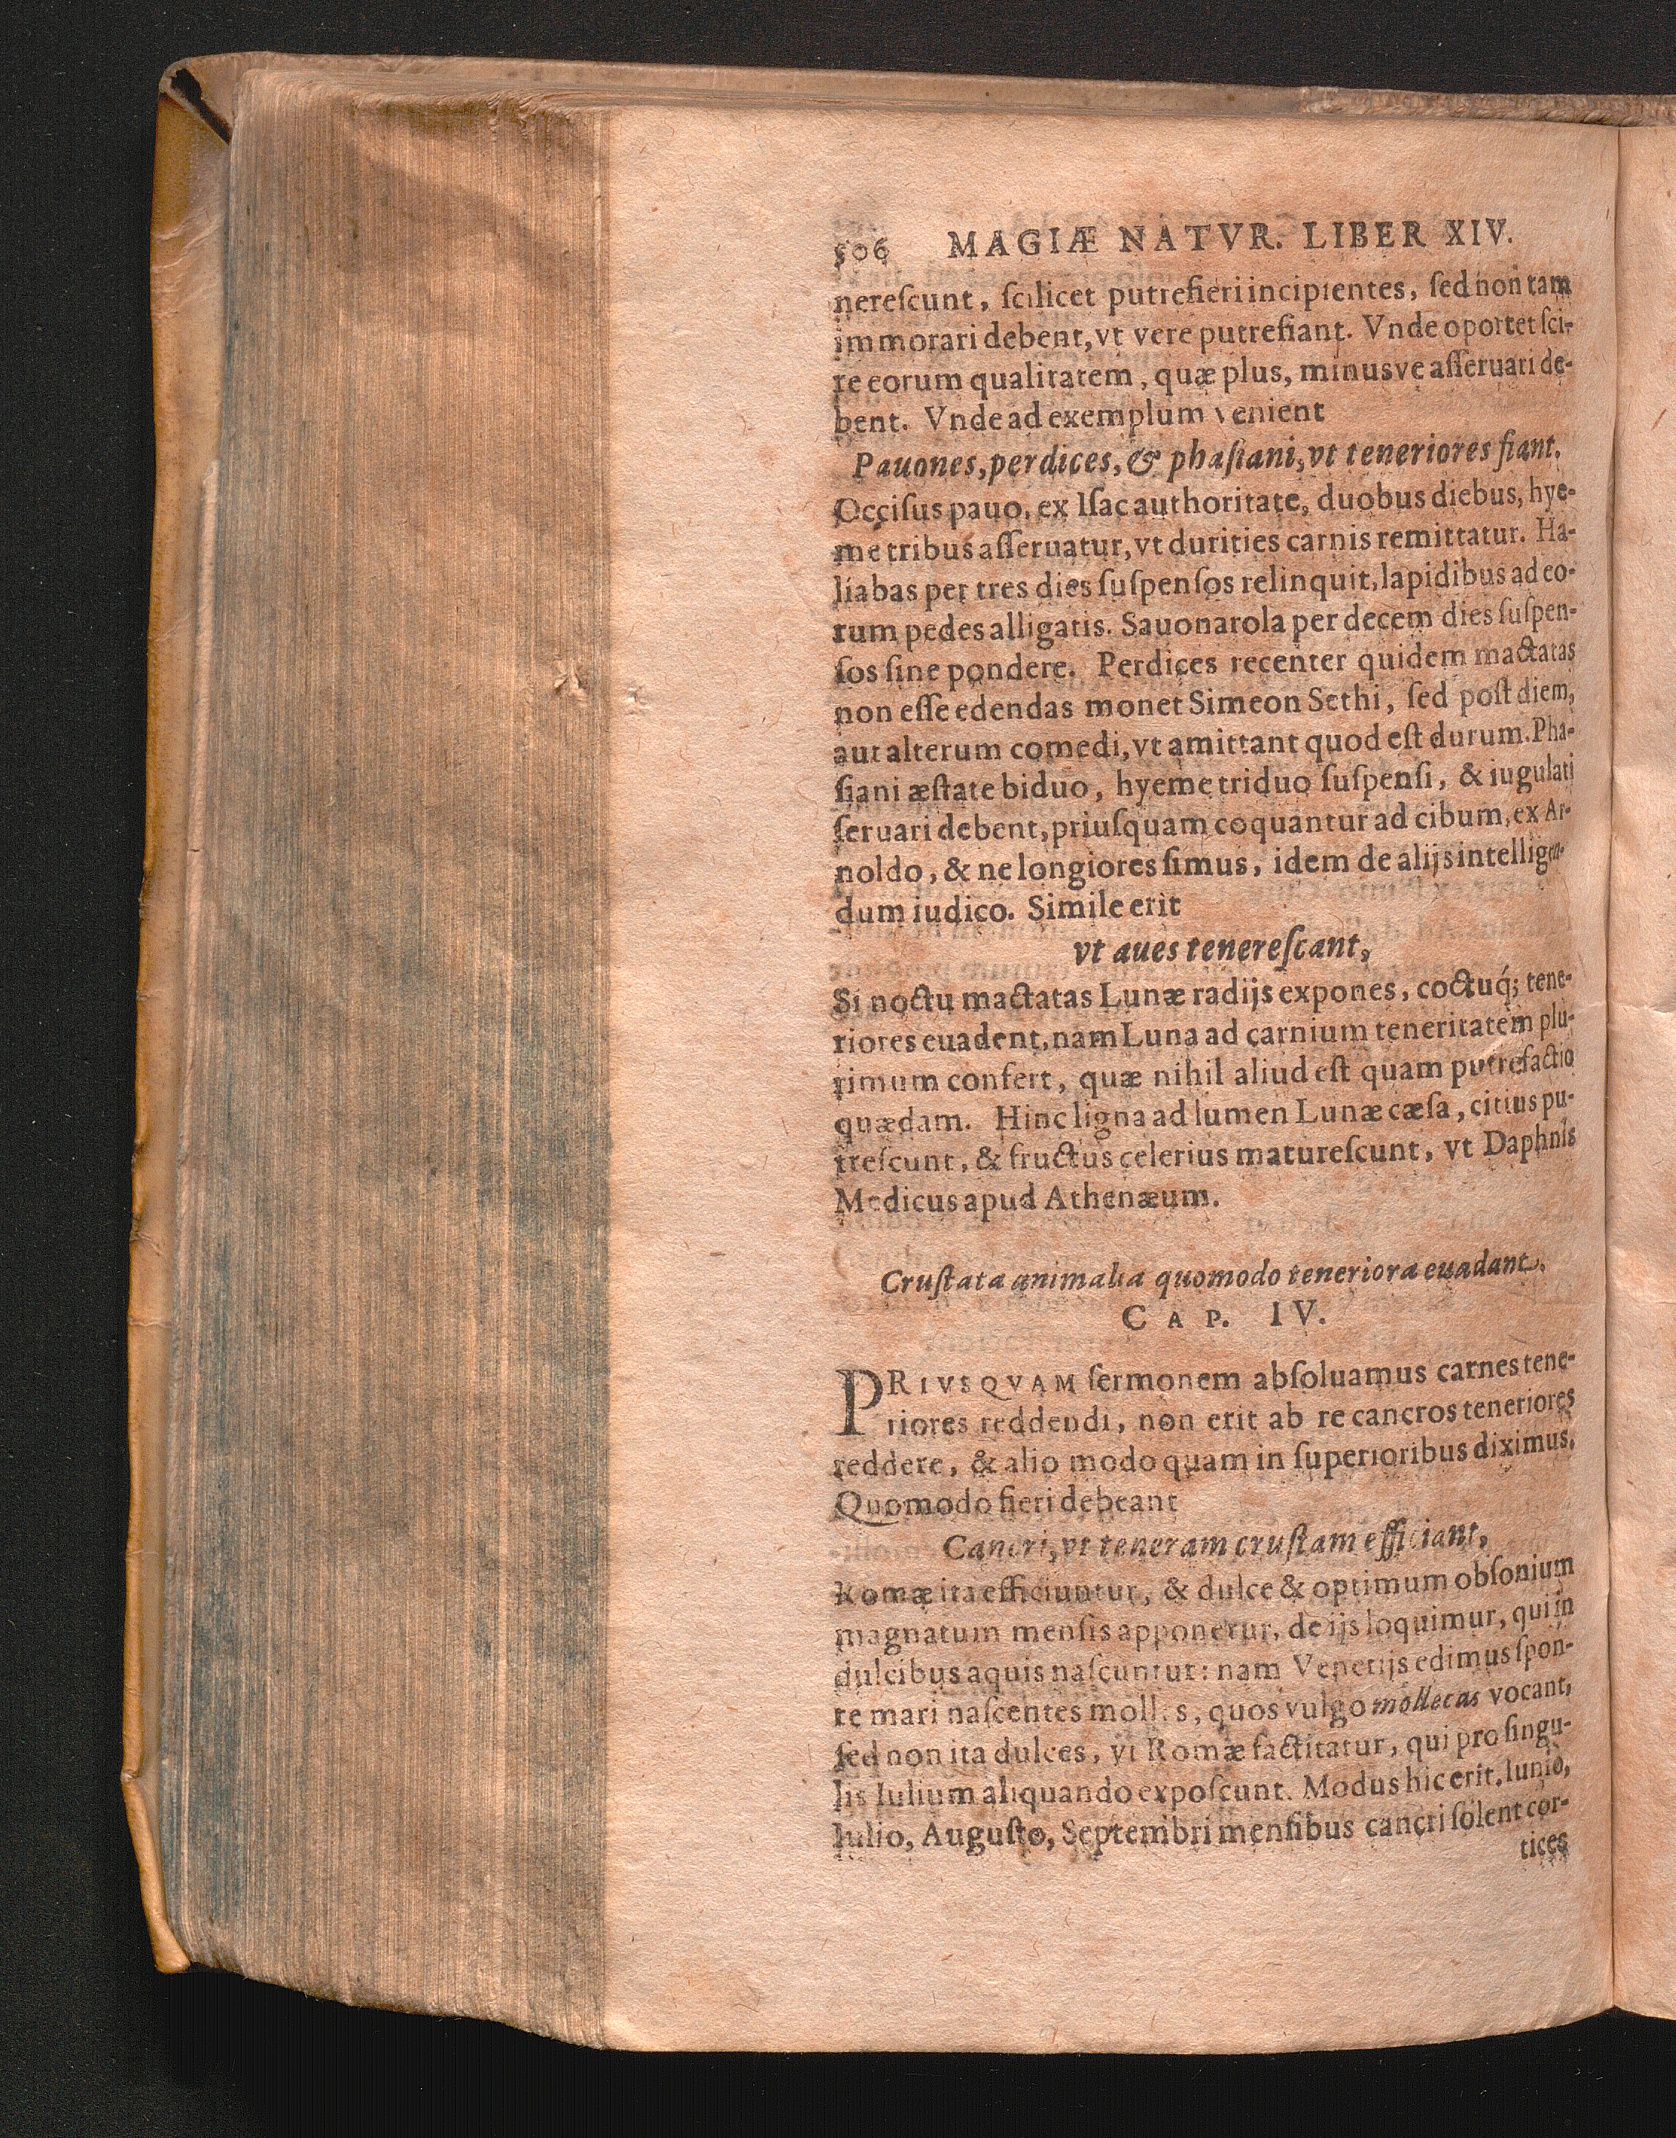 506 MAGIÆ NATVR. LIBER XIV.
nereſcunt, ſcilicet putrefieri incipientes, ſed non tam
immorari debent, vt vere putrefiant. Vnde oportet ſci-
re eorum qualitatem, quæ plus, minusve aſſeruari de-
bent. Vnde ad exemplum venient
Pauones, perdices, & phaſiani, vt teneriores fiant.
Occiſus pauo, ex Iſac authoritate, duobus diebus, hye-
me tribus aſſeruatur, vt durities carnis remittatur. Ha-
liabas per tres dies ſuſpenſos relinquit, lapidibus ad eo-
rum pedes alligatis. Sauonarola per decem dies ſuſpen-
ſos ſine pondere. Perdices recenter quidem mactatas
non eſſe edendas monet Simeon Sethi, ſed poſt diem,
aut alterum comedi, vt amittant quod eſt durum. Pha-
ſiani æſtate biduo, hyeme triduo ſuſpenſi, & iugulati
ſeruari debent, priuſquam coquantur ad cibum, ex Ar-
noldo, & ne longiores ſimus, idem de alijs intelligen-
dum iudico. Simile erit
vt aues tenereſcant,
Si noctu mactatas Lunæ radijs expones, coctuq́; tene-
riores euadent, nam Luna ad carnium teneritatem plu-
rimum confert, quæ nihil aliud eſt quam putrefactio
quædam. Hinc ligna ad lumen Lunæ cæſa, citius pu-
treſcunt, & fructus celerius matureſcunt, vt Daphnis
Medicus apud Athenæum.
Cruſtata animalia quomodo teneriora euadant.
CAP. IV.
PRIVSQVAM ſermonem abſoluamus carnes tene-
riores reddendi, non erit ab re cancros teneriores
reddere, & alio modo quam in ſuperioribus diximus.
Quomodo fieri debeant
Cancri, vt teneram cruſtam efficiant,
Romæ ita efficiuntur, & dulce & optimum obſonium
magnatum menſis apponetur, de ijs loquimur, qui in
dulcibus aquis naſcuntur: nam Venetijs edimus ſpon-
te mari naſcentes molles, quos vulgo mollecas vocant,
ſed non ita dulces, vt Romæ factitatur, qui pro ſingu-
lis Iulium aliquando expoſcunt. Modus hic erit. Iunio,
Iulio, Auguſto, Septembri menſibus cancri ſolent cor-
tices